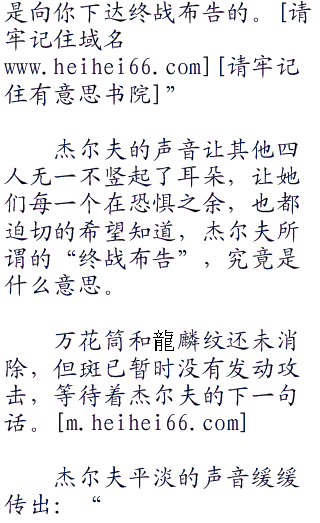 是向你下达终战布告的。[请
牢记住域名
www.heihei66.com][请牢记
住有意思书院]”
杰尔夫的声音让其他四
人无一不竖起了耳朵，让她
们每一个在恐惧之余，也都
迫切的希望知道，杰尔夫所
谓的“终战布告”，究竟是
什么意思。
万花筒和龍麟纹还未消
除，但斑已暂时没有发动攻
击，等待着杰尔夫的下一句
话。[m.heihei66.com]
杰尔夫平淡的声音缓缓
传出：“